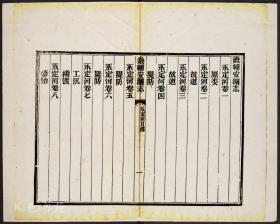 畿輔安瀾志
永定河卷一
原委
永定河卷二
故道
永定河卷三
故道
永定河卷四
隄防
永定河目錄
一
畿輔安瀾志
永定河卷五
隄防
永定河卷六
隄防
永定河卷七
工汛
永定河卷八